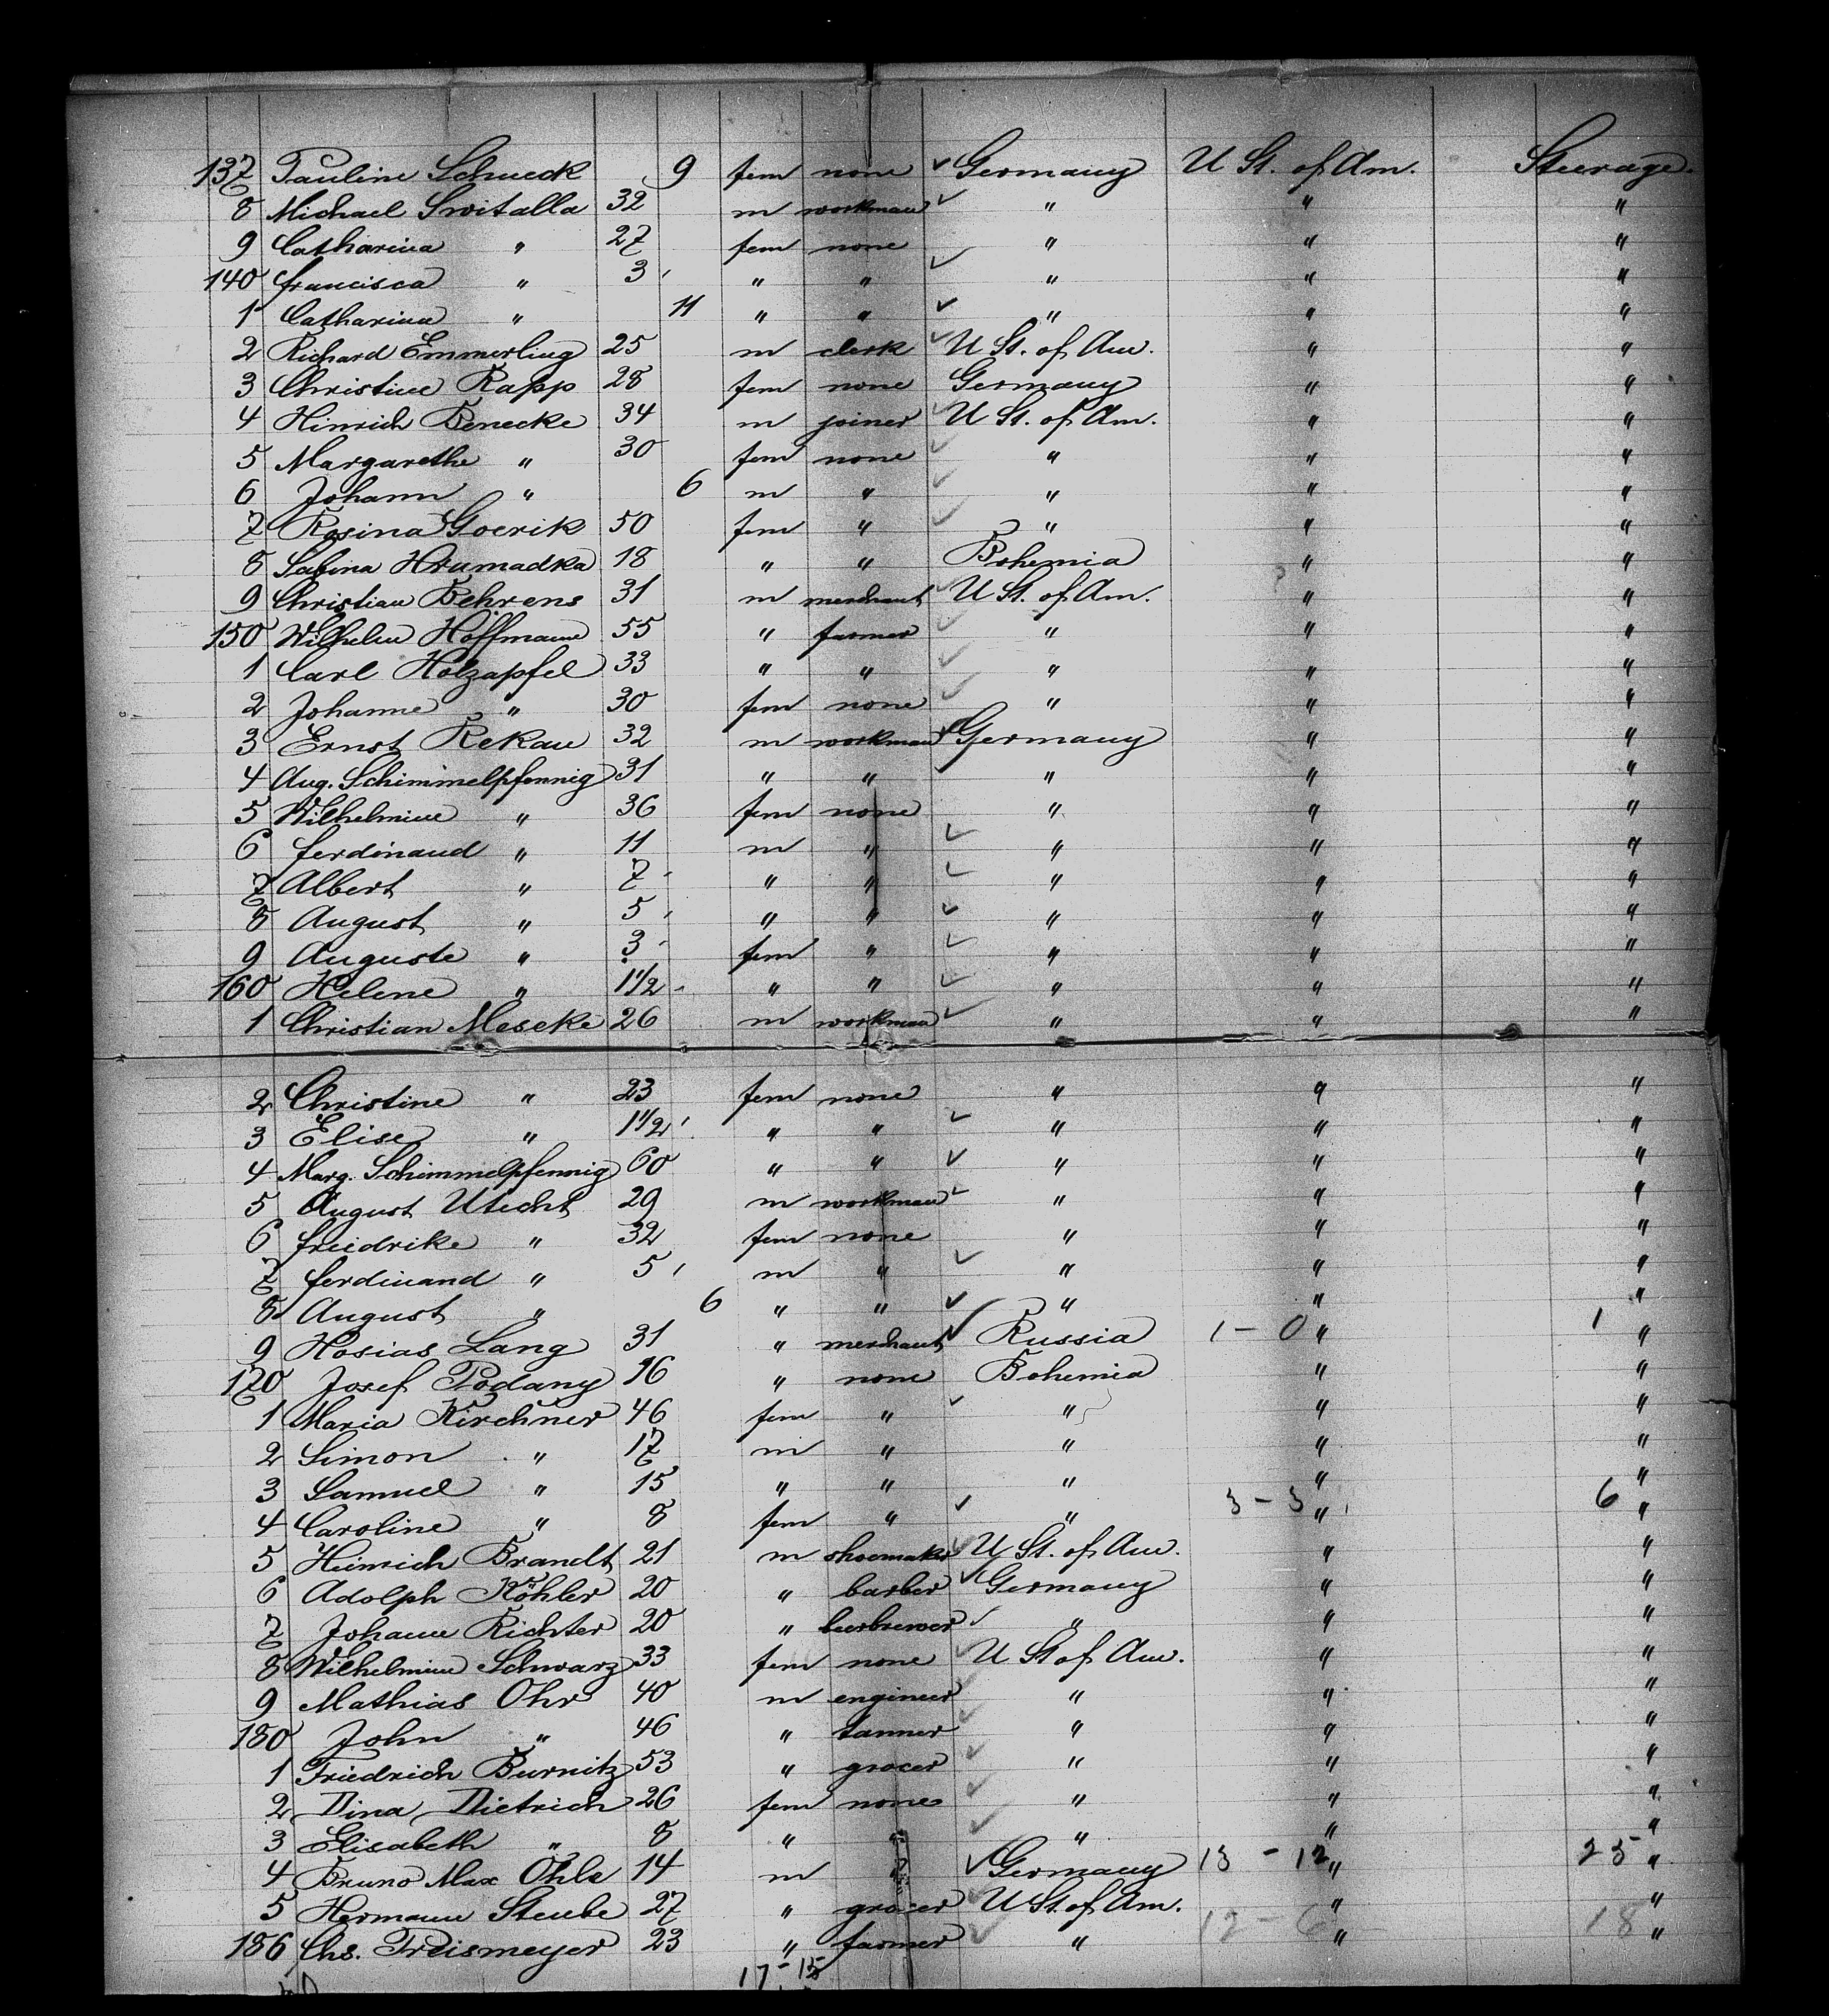 137 Pauline Schueck 9 fem none ✓ Germany U St. of Am. Steerage.
8 Michael Switalla 32 m workman ✓ " " "
9 Catharina " 27 fem none " " "
140 Francisca " 3 " " ✓ " " "
1 Catharina " 11 " " ✓ " " "
2 Richard Emmerling 25 m clerk ✓ U St. of Am. " "
3 Christine Rapp 28 fem none Germany " "
4 Hinrich Benecke 34 m joiner ✓ U St. of Am. " "
5 Margarethe " 30 fem none ✓ " " "
6 Johann " 6 m " ✓ " " "
7 Rosina Goerik 50 fem " ✓ " " "
8 Sabina Hrumadka 18 " " Bohemia " "
9 Christian Behrens 31 m merchant ✓ U St. of Am. " "
150 Wilhelm Hoffmann 55 " farmer ✓ " " "
1 Carl Holzapfel 33 " " ✓ " " "
2 Johanne " 30 fem none ✓ " " "
3 Ernst Rekau 32 m workman ✓ Germany " "
4 Aug. Schimmelpfennig 31 " " ✓ " " "
5 Wilhelmine " 36 fem none " " "
6 Ferdinand " 11 m " ✓ " " "
7 Albert " 7 " " ✓ " " "
8 August " 5 " " ✓ " " "
9 Auguste " 3 fem " ✓ " " "
160 Helene " 1 1/2 " " ✓ " " "
1 Christian Meseke 26 m workman ✓ " " "
2 Christine " 23 fem none " " "
3 Elise " 1 1/2 " " ✓ " " "
4 Marg. Schimmelpfennig 60 " " ✓ " " "
5 August Utecht 29 m workman ✓ " " "
6 Friedrike " 32 fem none " " "
7 Ferdinand " 5 m " ✓ " " "
8 August " 6 " " ✓ " " "
9 Hosias Lang 31 " merchant ✓ Russia 1 - 0 " 1 "
170 Josef Podany 16 " none Bohemia " "
1 Maria Kirchner 46 fem " ✓ " " "
2 Simon " 17 m " " " "
3 Samuel " 15 " " " " "
4 Caroline " 8 fem " ✓ " 3 - 3 " 6 "
5 Heinrich Brandt 21 m shoemaker ✓ U St. of Am. " "
6 Adolph Köhler 20 " barber ✓ Germany " "
7 Johann Richter 20 " beerbrewer ✓ " " "
8 Wilhelmine Schwarz 33 fem none ✓ U St of Am. " "
9 Mathias Ohr 40 m engineer ✓ " " "
180 John " 46 " tanner ✓ " " "
1 Friedrich Burnitz 53 " grocer ✓ " " "
2 Dina Dietrich 26 fem none ✓ " " "
3 Elisabeth " 8 " " ✓ " " "
4 Bruno Max Öhls 14 m " ✓ Germany 13 - 12 " 25 "
5 Hermann Steube 27 " grocer ✓ U St. of Am. " "
186 Chs. Freismeyer 23 " farmer ✓ " 12 - 6 " 18 "
17 - 15